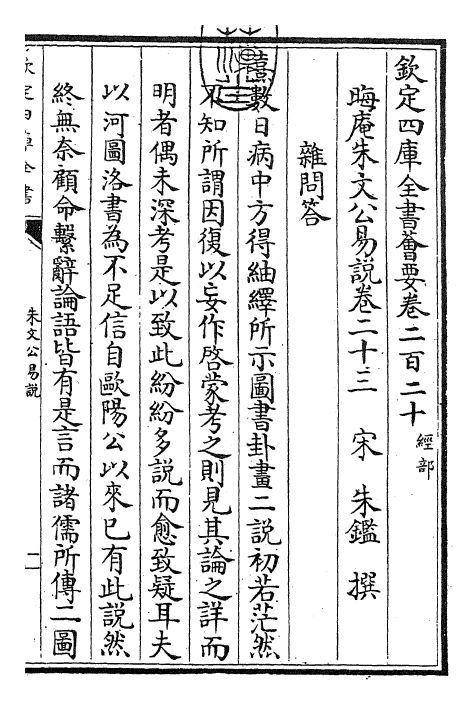 欽定四庫全書薈要卷二百二十 經部
晦庵朱文公易說卷二十三 宋 朱鑑 撰
雜問答
熹數日病中方得紬繹所示圖書卦畫二說初若茫然
不知所謂因復以妄作啓蒙考之則見其論之詳而
明者偶未深考是以致此紛紛多説而愈致疑耳夫
以河圖洛書為不足信自歐陽公以來已有此說然
終無奈顧命繫辭論語皆有是言而諸儒所傳二圖
欽定四庫全書
朱文公易說
一